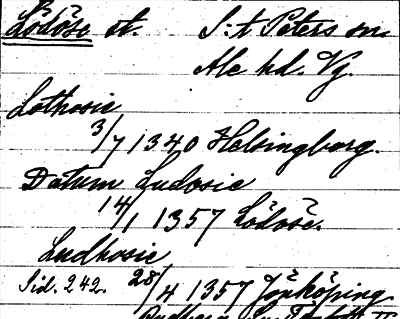 Lödöse st. S:t Peters sn.
Ale hd. Vg.
Lothosie
3/7 1340 Helsingborg.
Datum Ludosie
14/1 1357 Lödöse.
Ludhosie
Sid. 242. 28/4 1357 Jönköping